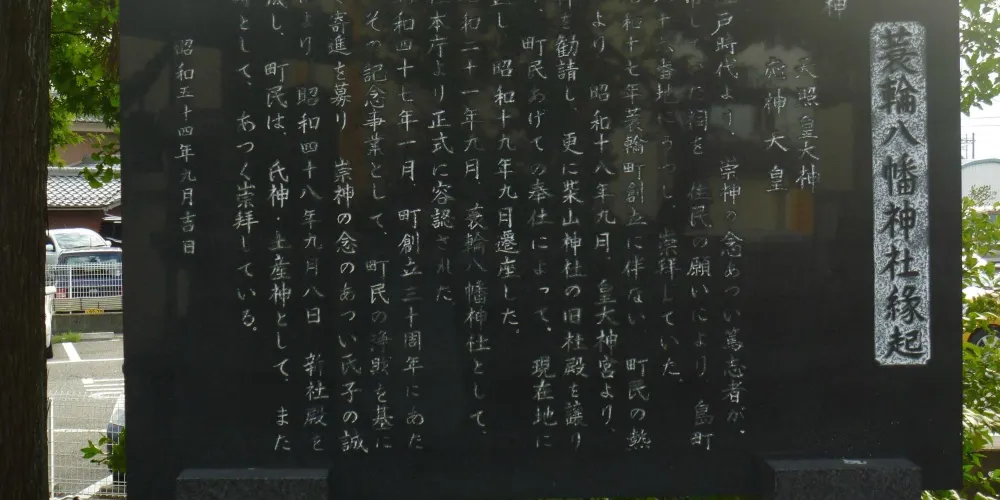 蓑輪八幡神社縁起
神
天照皇大神
応神大皇
戸時代より、崇神の念あつい篤志者が、
に祠を 住民の願いにより、畠町
当地にうつし、崇拝していた。
和十七年蓑輪町創立に伴ない 町民の熱
より 昭和十八年九月、皇大神宮より、
を勧請し、更に柴山神社の旧社殿を譲り
町民あげての奉仕によって、現在地に
し 昭和十九年九月遷座した。
和二十一年九月、蓑輪八幡神社として、
本庁より正式に容認された
和四十七年一月、町創立三十周年にあた
その記念事業として、町民の浄財を基に
寄進を募り 崇神の念のあつい氏子の誠
より 昭和四十八年九月八日 新社殿を
成し、町民は、氏神・土産神として、また
として、あつく崇拝している。
昭和五十四年九月吉日